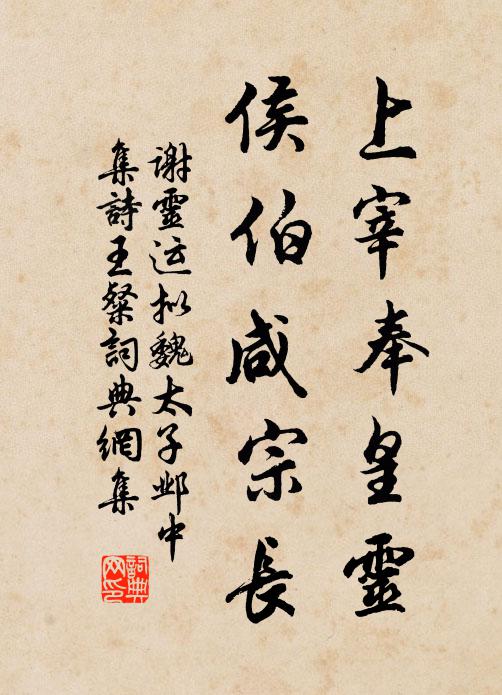 上宰奉皇靈
侯伯咸宗長
谢靈运拟魏太子邺中
集詩王粲詞典網集
詞典网印